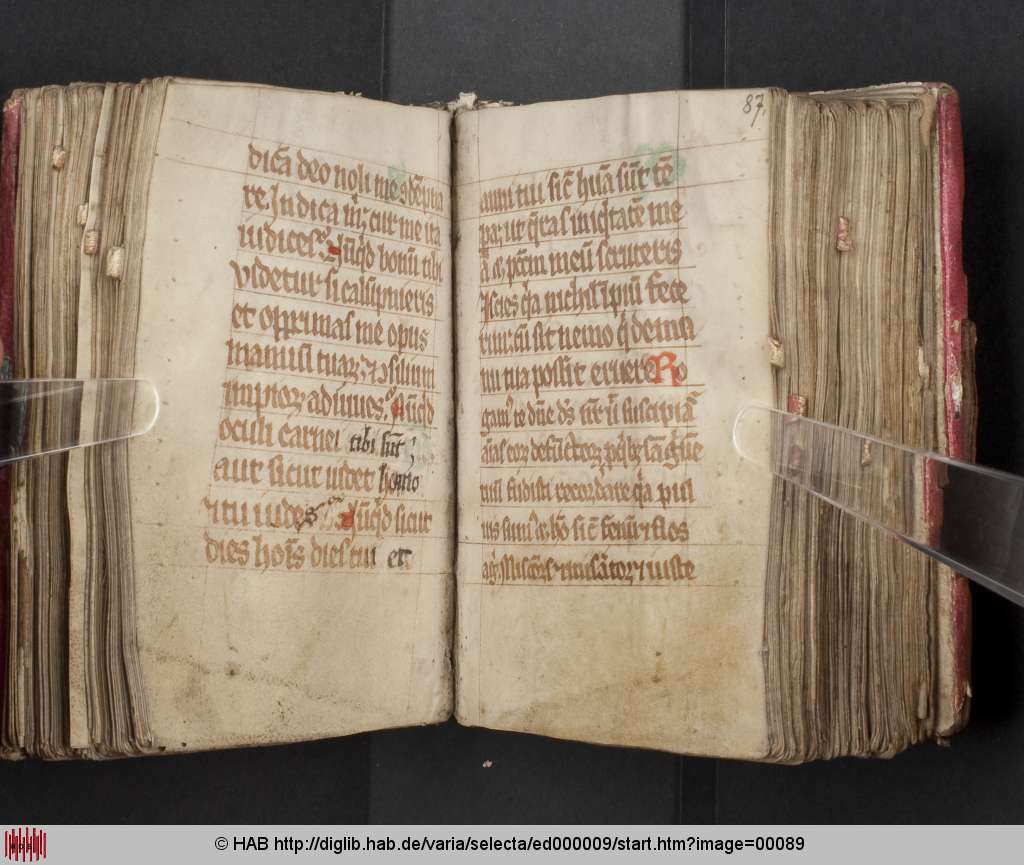 dicā deo noli me ꝯdēpna
re. Indica m; cur me ita
iudices. Nūqd bonū tibi
videtur si calūpnieris
et opprimas me opus
manuū tuaꝝ ⁊ ꝯsilium
impioꝝ adiuues. Nūqd
oculi carnei tibi sūt
aut sicut uidet homo
⁊ tu uides Nūqd sicut
dies hoīs dies tui et
87.
anni tui sic̄ hūa sūt tē
pa; ut q̄ras iniq̄tatē me
ā ⁊ pc̄tm meū scruteris
⁊ scies q̄a nichil īpiū fece
rim; cū sit nemo q̄ de ma
nu tua possit eruere Ro
gamꝰ te dn̄e ds̄ nr̄ ut suscipias
aīas eoꝝ defūctoꝝ
tuū fudisti recordare q̄a pul
uis sumꝰ ⁊ hō sic̄ fenū ⁊ flos
agi ⁊ uiste
© HAB http://diglib.hab.de/varia/selecta/ed000009/start.htm?image=00089